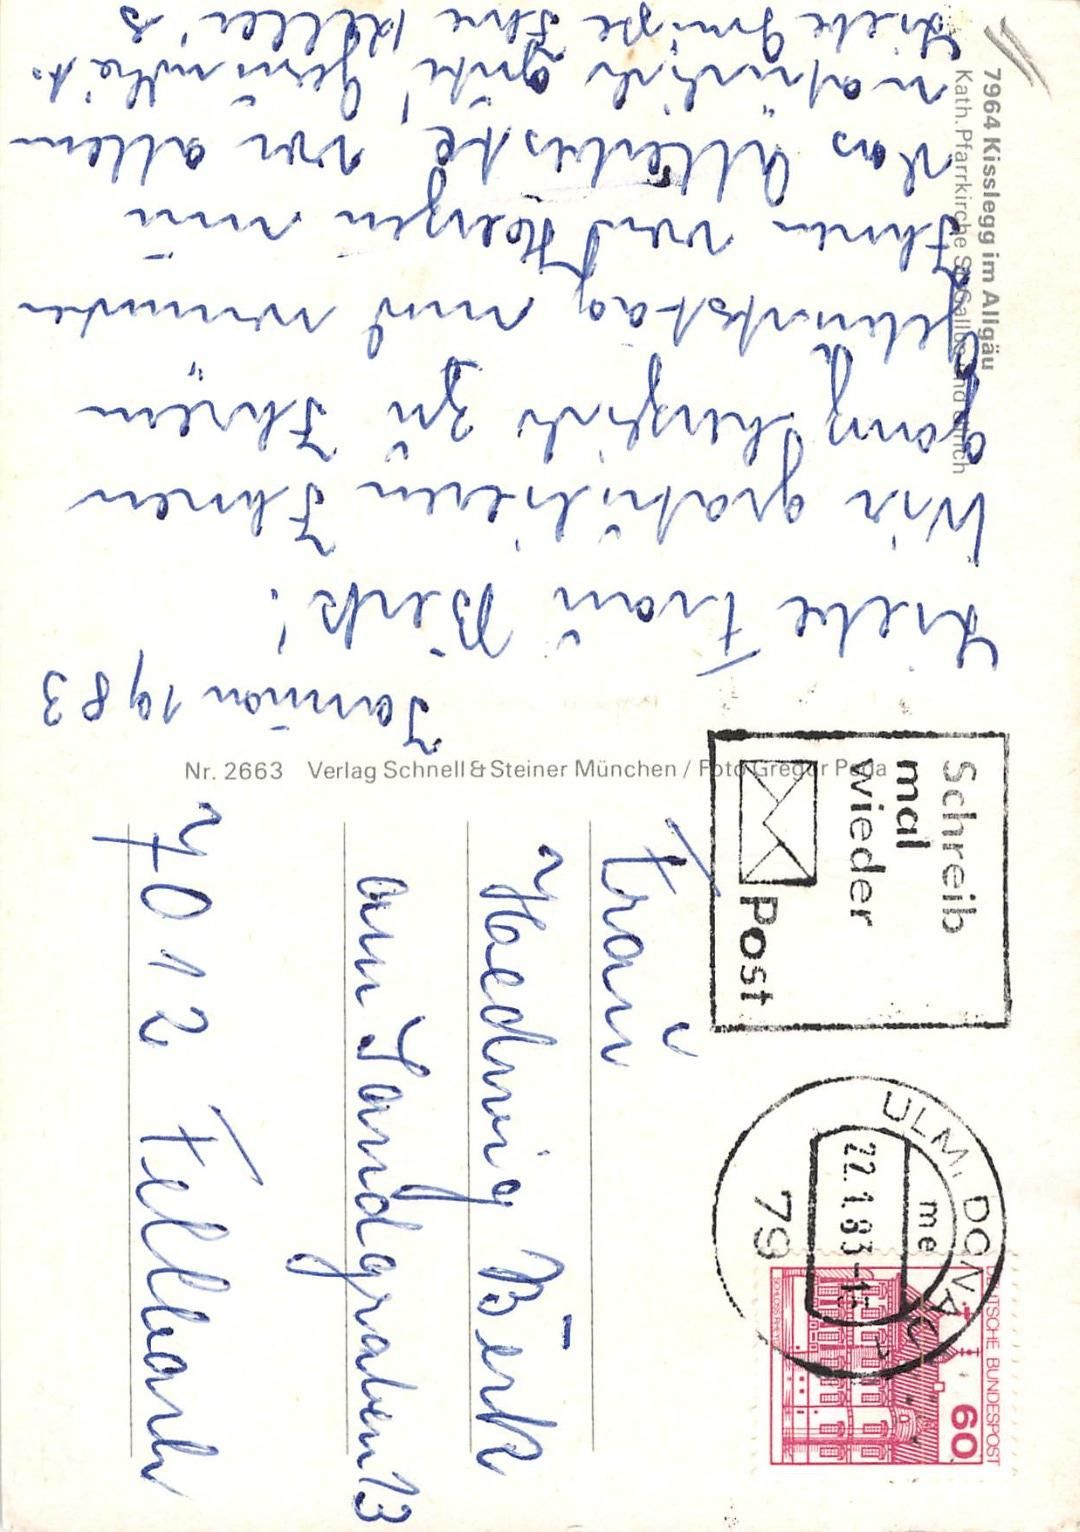 7964 Kisslegg im Allgäu
Kath. Pfarrkirche St. Gallus und Ulrich
Januar 1983
Liebe Frau Berk!
Wir gratulieren Ihnen
ganz herzlich zu Ihrem
Geburtstag und wünschen
Ihnen von Herzen nur
das Allerbeste, vor allem
natürlich gute Gesundheit.
Liebe Grüsse Ihre Keller's
Nr. 2663 Verlag Schnell & Steiner München / Foto Gregor Peda
Schreib
mal
wieder
Post
ULM, DONAU
me
22.1.83-18
79
DEUTSCHE BUNDESPOST
60
Frau
Hedwig Berk
am Landgraben 13
7012 Fellbach